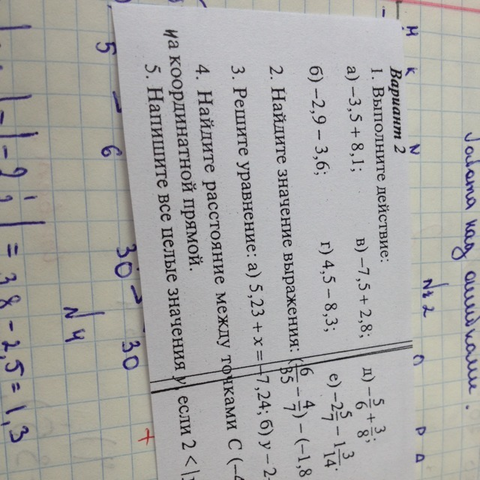 Вариант 2
1. Выполните действие:
а) −3,5 + 8,1; в) −7,5 + 2,8; д) −5/6 + 3/8;
б) −2,9 − 3,6; г) 4,5 − 8,3; е) −2 5/7 − 1 3/14.
2. Найдите значение выражения: (6/35 − 4/7) − (−1,8
3. Решите уравнение: а) 5,23 + x = −7,24; б) у − 2
4. Найдите расстояние между точками С (−4
на координатной прямой.
5. Напишите все целые значения у, если 2 < |
Работа над ошибками.
№2
5 6 30 30
№4
= 3,8 − 2,5 = 1,3